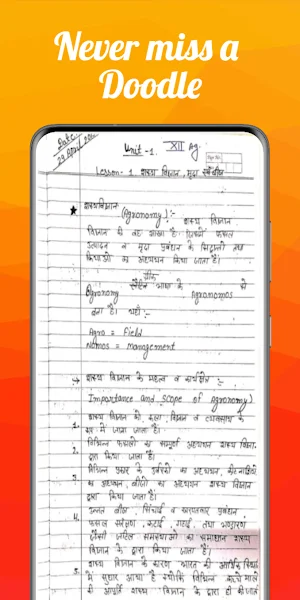 Never miss a
Doodle
Date
Unit - 1. XII Ag.
Lesson - 1. शस्य विज्ञान, मृदा एवं बीज
★ शस्यविज्ञान
(Agronomy) :- शस्य विज्ञान
विज्ञान की वह शाखा है जिसमें फसल
उत्पादन व मृदा प्रबंधन के सिद्धान्तों तथा
क्रियाओं का अध्ययन किया जाता है।
ग्रीक
Agronomy भाषा के Agronomos से
बना है। यहाँ :-
Agro = Field
Nomos = Management
→ शस्य विज्ञान के महत्व व कार्यक्षेत्र
Importance and Scope of Agronomy)
1. शस्य विज्ञान को कला, विज्ञान व व्यवसाय के
रूप में जाना जाता है।
2. विभिन्न फसलों का सम्पूर्ण अध्ययन शस्य विज्ञान
द्वारा किया जाता है।
3. विभिन्न प्रकार के उर्वरकों का अध्ययन,
का अध्ययन, बीजों का अध्ययन शस्य विज्ञान
द्वारा किया जाता है।
4. उन्नत बीज, सिंचाई व खरपतवार प्रबंधन
फसल संरक्षण, कटाई, गहाई, तथा भण्डारण
जैसी जटिल समस्याओं का समाधान शस्य
विज्ञान के द्वारा किया जाता है।
5. शस्य विज्ञान के कारण भारत की आर्थिक स्थिति
में सुधार आया है क्योंकि विभिन्न कच्चे माल
की आपूर्ति शस्य विज्ञान के द्वारा ही की जाती